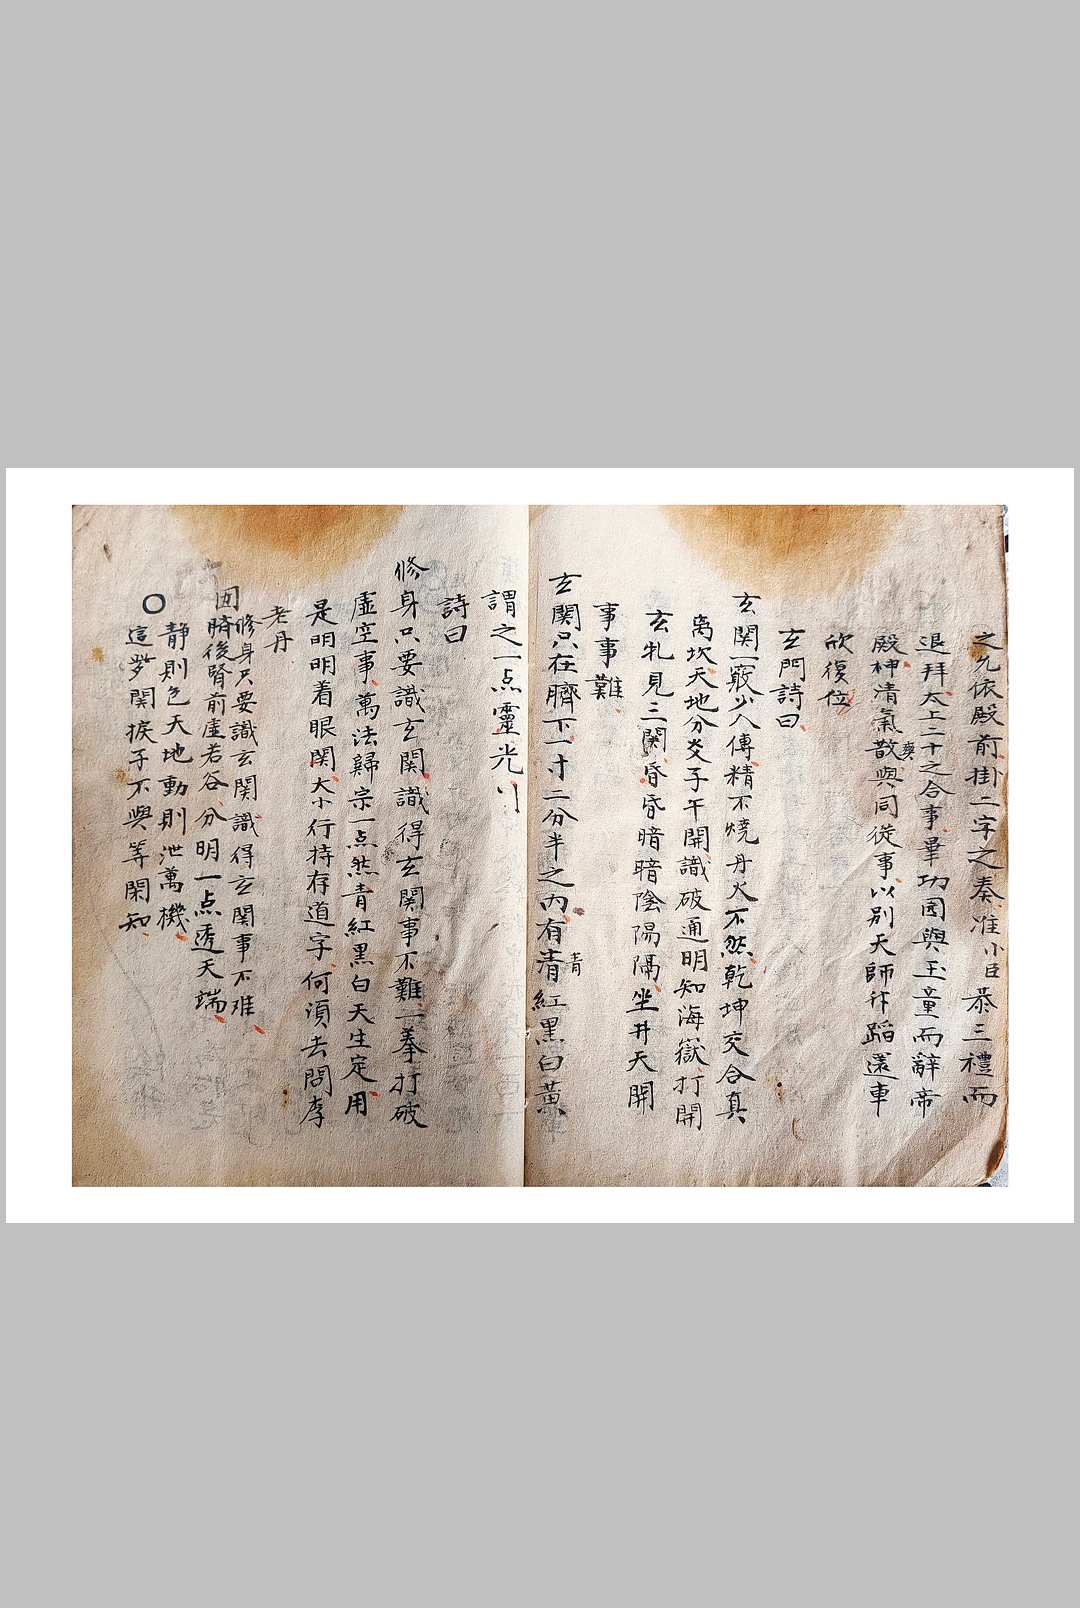 之允依殿前掛二字之奏准小臣恭三禮而
退拜太上二十之合事畢功圓與玉童而辭帝
殿神清氣散爽與同從事以别天師仵蹈還車
欣復位
玄門詩曰
玄関一竅少人傳精不燒丹火不然乾坤交合真
离坎天地分爻子午開識破通明知海嶽打開
玄牝見三関昏昏暗暗陰陽隔坐井天開
事事難
玄関只在臍下一寸二分半之内有青青紅黑白黃
謂之一点靈光
詩曰
修身只要識玄関識得玄関事不難一拳打破
虚空事萬法歸宗一点然青紅黑白天生定用
是明明着眼関大小行持存道字何須去問李
老丹
修身只要識玄関識得玄関事不难
臍後腎前虚若谷分明一点透天端
静則包天地動則泄萬機
〇這関捩子不與等閑知